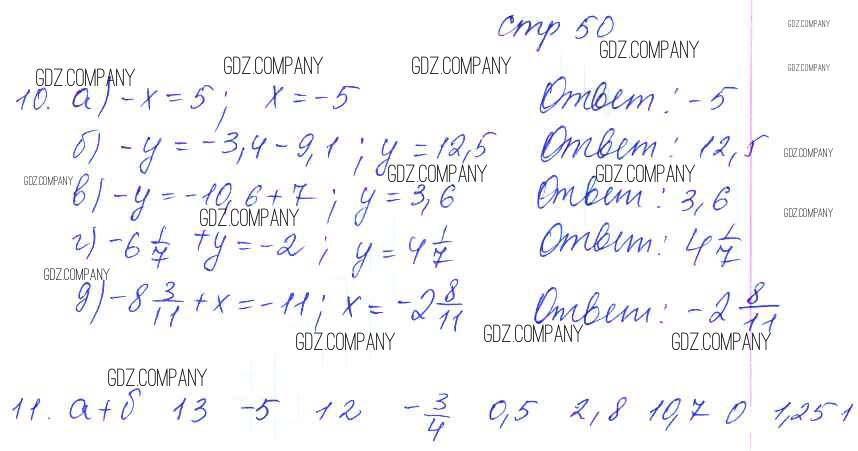 стр 50
GDZ.COMPANY
GDZ.COMPANY
GDZ.COMPANY GDZ.COMPANY GDZ.COMPANY
GDZ.COMPANY
10. а) -x = 5; x = -5 Ответ: -5
б) -y = -3,4 - 9,1; y = 12,5 Ответ: 12,5
GDZ.COMPANY
GDZ.COMPANY GDZ.COMPANY GDZ.COMPANY
в) -y = -10,6 + 7; y = 3,6 Ответ: 3,6
GDZ.COMPANY GDZ.COMPANY
г) -6 1/7 + y = -2; y = 4 1/7 Ответ: 4 1/7
GDZ.COMPANY
д) -8 3/11 + x = -11; x = -2 8/11 Ответ: -2 8/11
GDZ.COMPANY GDZ.COMPANY GDZ.COMPANY
GDZ.COMPANY
11. а+б 13 -5 12 -3/4 0,5 2,8 10,7 0 1,251